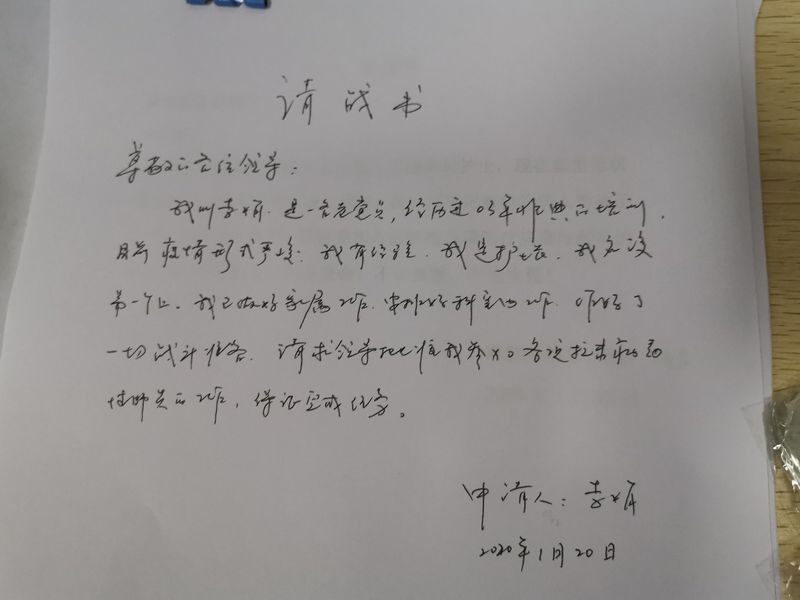 请战书
尊敬的各位领导:
我叫李妍.是一名老党员,经历过03年非典的培训.
目前疫情形式严峻.我有经验.我是护士长.我应该
第一个上.我已做好家属工作.安排好科室的工作.作好了
一切战斗准备.请求领导批准我参加各项
的工作,保证完成任务。
申请人:李妍
2020年1月20日